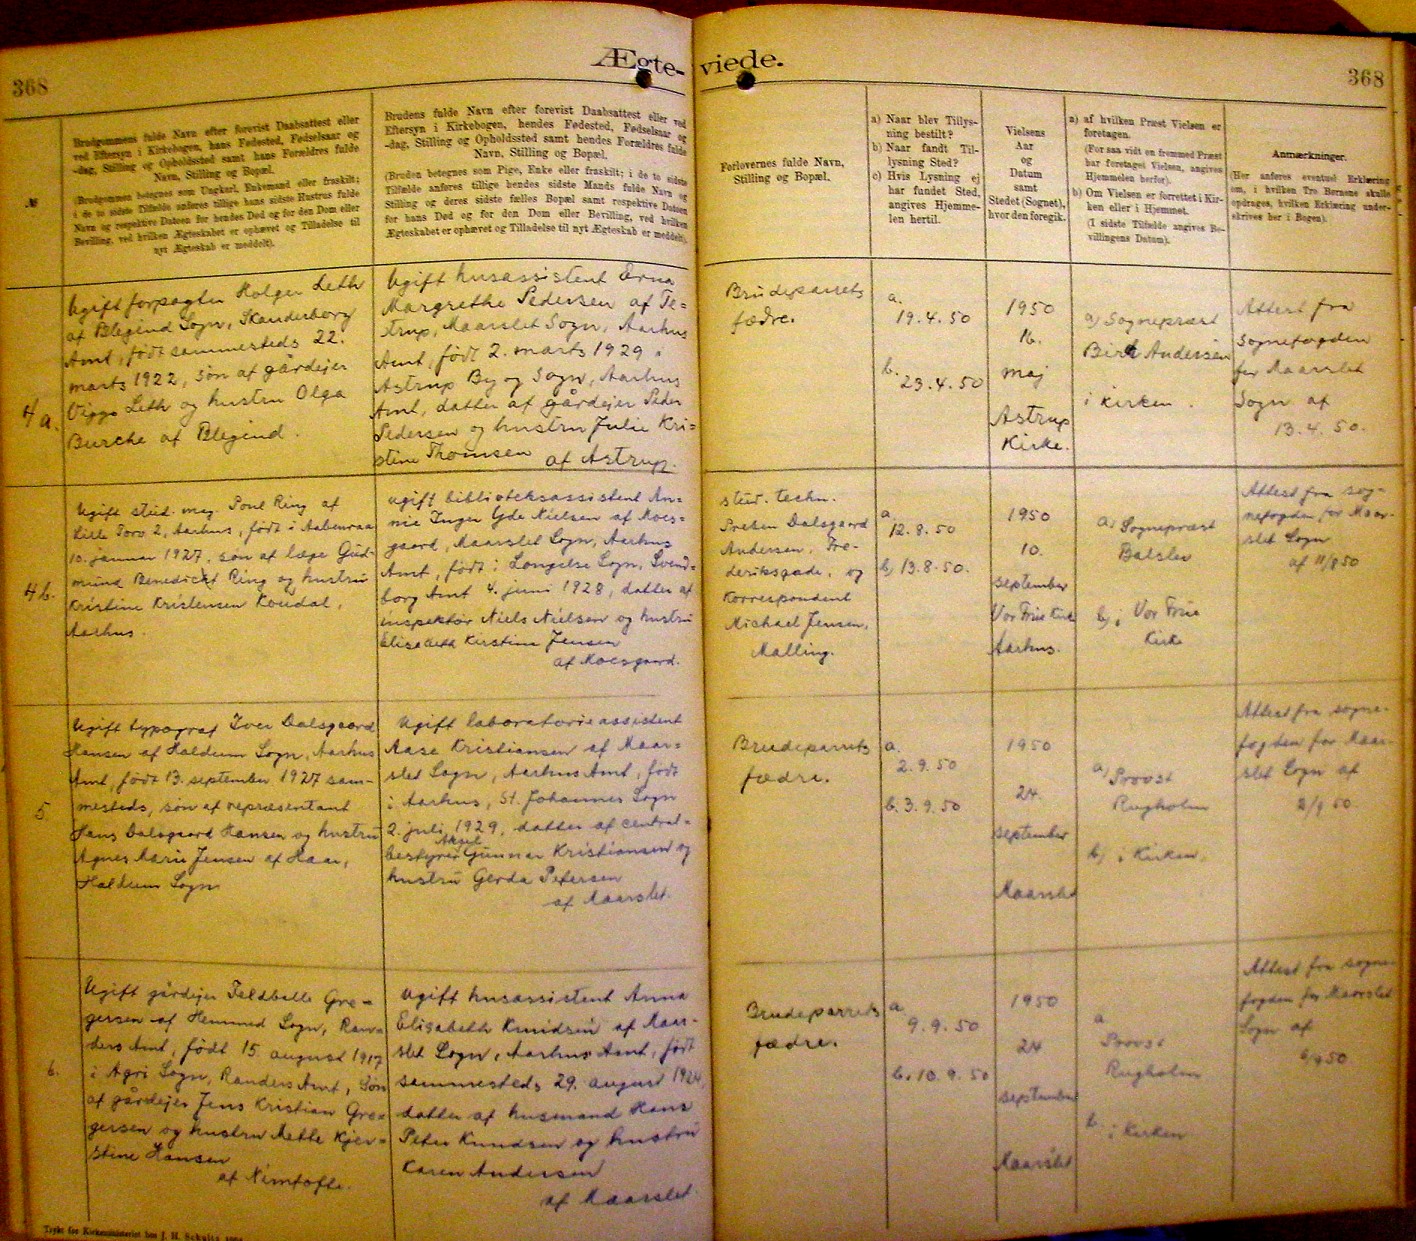 368
Ægte-
viede.
368
№
Brudgommens fulde Navn efter forevist Daabsattest eller
ved Eftersyn i Kirkebogen, hans Fødested, Fødselsaar og
-dag, Stilling og Opholdssted samt hans Forældres fulde
Navn, Stilling og Bopæl.
(Brudgommen betegnes som Ungkarl, Enkemand eller fraskilt;
i de to sidste Tilfælde anføres tillige hans sidste Hustrus fulde
Navn og respektive Datoen for hendes Død og for den Dom eller
Bevilling, ved hvilken Ægteskabet er ophævet og Tilladelse til
nyt Ægteskab er meddelt).
Brudens fulde Navn efter forevist Daabsattest eller ved
Eftersyn i Kirkebogen, hendes Fødested, Fødselsaar og
-dag, Stilling og Opholdssted samt hendes Forældres fulde
Navn, Stilling og Bopæl.
(Bruden betegnes som Pige, Enke eller fraskilt; i de to sidste
Tilfælde anføres tillige hendes sidste Mands fulde Navn og
Stilling og deres sidste fælles Bopæl samt respektive Datoen
for hans Død og for den Dom eller Bevilling, ved hvilken
Ægteskabet er ophævet og Tilladelse til nyt Ægteskab er meddelt).
Forlovernes fulde Navn,
Stilling og Bopæl.
a) Naar blev Tillys-
ning bestilt?
b) Naar fandt Til-
lysning Sted?
c) Hvis Lysning ej
har fundet Sted,
angives Hjemme-
len hertil.
Vielsens
Aar
og
Datum
samt
Stedet (Sognet),
hvor den foregik.
a) af hvilken Præst Vielsen er
foretagen.
(For saa vidt en fremmed Præst
har foretaget Vielsen, angives
Hjemmelen herfor).
b) Om Vielsen er forrettet i Kir-
ken eller i Hjemmet.
(I sidste Tilfælde angives Be-
villingens Datum).
Anmærkninger.
(Her anføres eventuel Erklæring
om, i hvilken Tro Børnene skulle
opdrages, hvilken Erklæring under-
skrives her i Bogen).
4a.
Ugift forpagter Holger Leth
af Blegind Sogn, Skanderborg
Amt, født sammesteds 22.
marts 1922, søn af gårdejer
Viggo Leth og hustru Olga
Burche af Blegind.
Ugift husassistent Erna
Margrethe Pedersen af Te=
strup, Maarslet Sogn, Aarhus
Amt, født 2. marts 1929 i
Astrup By og Sogn, Aarhus
Amt, datter af gårdejer Peder
Pedersen og hustru Julie Kri=
stine Thomsen af Astrup.
Brudeparrets
fædre.
a.
19.4.50
b.
23.4.50
1950
16.
maj
Astrup
Kirke.
a) Sognepræst
Birk Andersen
i kirken.
Attest fra
sognefogden
for Maarslet
Sogn af
13.4.50.
4b.
Ugift stud. mag. Poul Ring af
Lille Torv 2, Aarhus, født i Aabenraa
10. januar 1927, søn af læge Gud-
mund Benedickt Ring og hustru
Kristine Kristensen Koudal,
Aarhus.
Ugift biblioteksassistent An=
nie Inger Yde Nielsen af Moes=
gaard, Maarslet Sogn, Aarhus
Amt, født i Longelse Sogn, Svend=
borg Amt 4. juni 1928, datter af
inspektør Niels Nielsen og hustru
Elisabeth Kirstine Jensen
af Moesgaard.
stud. techn.
Preben Dalsgaard
Andersen, Fre-
deriksgade, og
Korrespondent
Michael Jensen,
Malling.
a
12.8.50
b) 13.8.50.
1950
10.
september
Vor Frue Kirke
Aarhus.
a) Sognepræst
Balslev
b) i Vor Frue
Kirke
Attest fra sog-
nefogden for Maar-
slet Sogn
af 11/8 50
5
Ugift typograf Iver Dalsgaard
Hansen af Haldum Sogn, Aarhus
Amt, født 13. september 1927 sam-
mesteds, søn af repræsentant
Hans Dalsgaard Hansen og hustru
Agnes Marie Jensen af Haar,
Haldum Sogn
Ugift laboratorieassistent
Aase Kristiansen af Maar=
slet Sogn, Aarhus Amt, født
i Aarhus, St. Johannes Sogn
2. juli 1929, datter af central=
Aksel
bestyrer Gunnar Kristiansen og
hustru Gerda Petersen
af Maarslet.
Brudeparrets
fædre.
a.
2.9.50
b. 3.9.50
1950
24.
september
Maarslet
a) Provst
Rugholm
b) i Kirken.
Attest fra sogne-
fogden for Maar-
slet Sogn af
2/9 50
6.
Ugift gårdejer Feldballe Gre=
gersen af Hemmed Sogn, Ran=
ders Amt, født 15. august 1917
i Agri Sogn, Randers Amt, Søn
af gårdejer Jens Kristian Gre=
gersen og hustru Mette Kjer=
stine Hansen
af Nimtofte.
Ugift husassistent Anna
Elisabeth Knudsen af Maar-
slet Sogn, Aarhus Amt, født
sammesteds 29. august 1924,
datter af husmand Hans
Peter Knudsen og hustru
Karen Andersen
af Maarslet
Brudeparrets
fædre.
a.
9.9.50
b. 10.9.50
1950
24
september
Maarslet
a.
Provst
Rugholm
b. i Kirken
Attest fra sogne-
fogden for Maarslet
Sogn af
6/9 50
Trykt for Kirkeministeriet hos J. H. Schultz